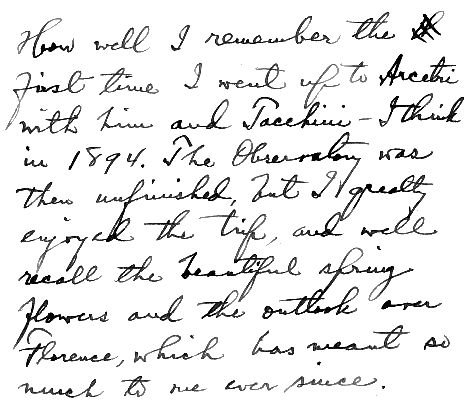 How well I remember the
first time I went up to Arcetri
with him and Tacchini - I think
in 1894. The Observatory was
then unfinished, but I greatly
enjoyed the trip, and well
recall the beautiful spring
flowers and the outlook over
Florence, which has meant so
much to me ever since.